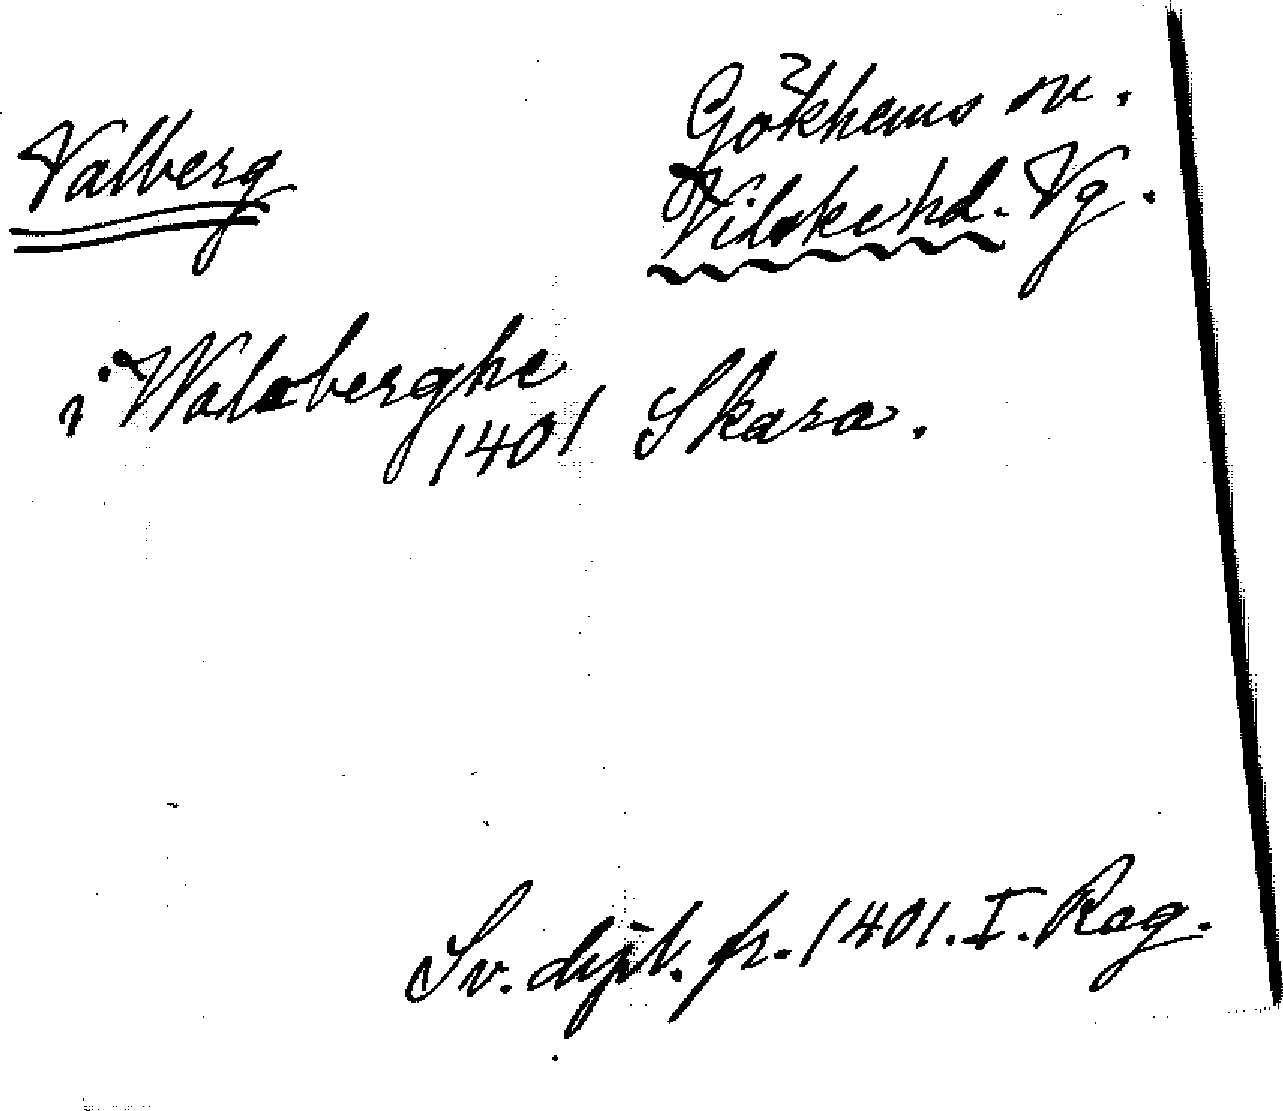 Valberg
Gökhems sn.
Vilske hd. Vg.
i Walaberghe
1401 Skara.
Sv. dipl. fr. 1401. I. Reg.